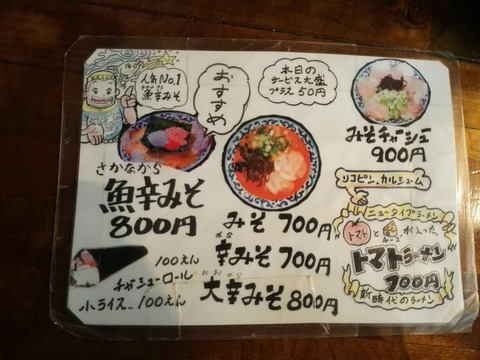 人気No.1
魚辛みそ
おすすめ
本日の
サービス大盛
プラス50円
みそチャーシュー
900円
さかなから
魚辛みそ
800円
みそ 700円
から
辛みそ 700円
おおから
大辛みそ 800円
100えん
チャシューロール
小ライス..100えん
リコピン、カルシューム
ニュータイプラーメン
トマトと
チーズ
が入った、
トマトラーメン
700円
新時代のラーメン